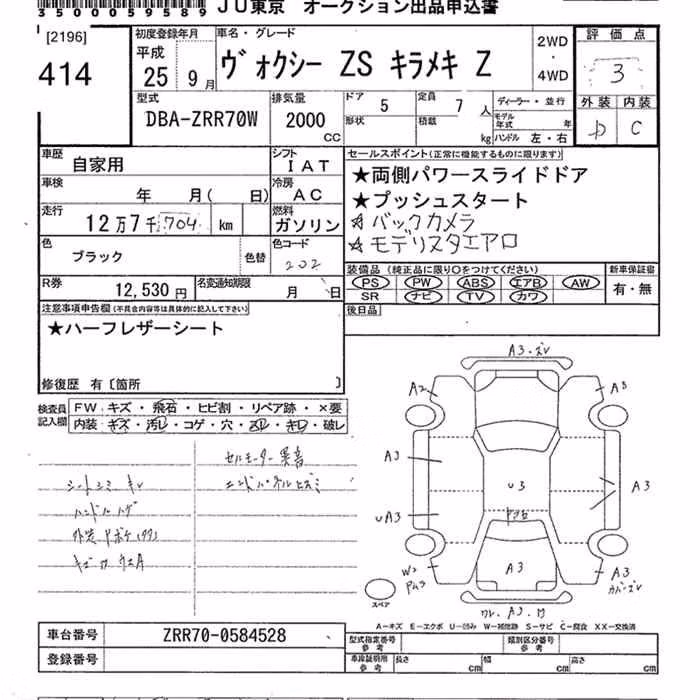 350059589 JU東京 オークション出品申込書
[2196]
414
初度登録年月
平成
25 9月
車名・グレード
ヴォクシー ZS キラメキ Z
2WD
・
4WD
評価点
3
外装 内装
D C
型式
DBA-ZRR70W
排気量
2000
CC
ドア 5
形状
定員 7 人
積載 kg
ディーラー・並行
モデル年式 年
ハンドル 左・右
車歴
自家用
シフト
IAT
車検
年 月( 日)
冷房
AC
走行
12万7千704 km
燃料
ガソリン
色
ブラック
色替
色コード
202
R券
12,530円
名変通知期限
月 日
セールスポイント(正常に機能するものに限ります)
★両側パワースライドドア
★プッシュスタート
☆バックカメラ
☆モデリスタエアロ
装備品(純正品に限り○をつけてください)
PS PW ABS エアB AW
SR ナビ TV カワ
新車保証書
有・無
後日品
注意事項申告欄(不具合内容等は具体的に記入して下さい)
★ハーフレザーシート
修復歴 有〔箇所 〕
検査員
記入欄
FW キズ・飛石・ヒビ割・リペア跡・×要
内装 キズ・汚レ・コゲ・穴・スレ・キレ・破レ
セルモーター異音
エンドパネルヒズミ
シートシミ キレ
ハンドルハゲ
A3
A2
A3
A3
UA3
U3
A3
W2
A3
A3
スペア
A3
A-キズ E-エクボ U-凹み W-補修跡 S-サビ C-腐食 XX-交換済
車台番号
ZRR70-0584528
登録番号
型式指定番号
参考
類別区分番号
参考
車庫証明用
参考
長さ cm
幅 cm
高さ cm